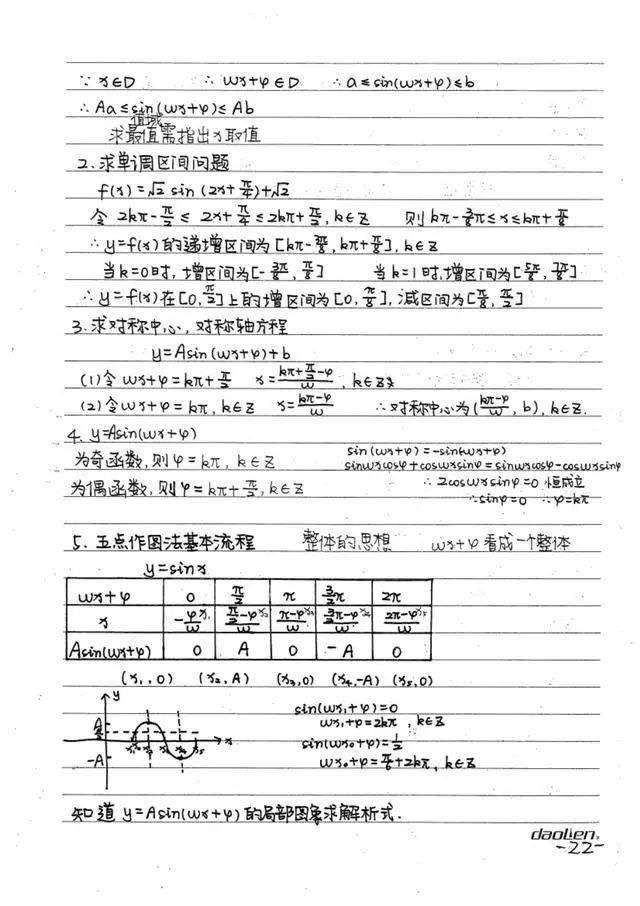 ∵ x∈D ∴ ωx+φ∈D ∴ a≤sin(ωx+φ)≤b
∴ Aa≤sin(ωx+φ)≤Ab
值域
求最值需指出x取值
2. 求单调区间问题
f(x)=√2 sin(2x+π/4)+√2
令 2kπ-π/2≤2x+π/4≤2kπ+π/2, k∈Z 则 kπ-3/8π≤x≤kπ+π/8
∴ y=f(x)的递增区间为[kπ-3π/8, kπ+π/8], k∈Z
当k=0时, 增区间为[-3π/8, π/8] 当k=1时, 增区间为[5π/8, 9π/8]
∴ y=f(x)在[0, π/2]上的增区间为[0, π/8], 减区间为[π/8, π/2]
3. 求对称中心, 对称轴方程
y=Asin(ωx+φ)+b
(1)令 ωx+φ=kπ+π/2 x=(kπ+π/2-φ)/ω, k∈Z
(2)令 ωx+φ=kπ, k∈Z x=(kπ-φ)/ω ∴对称中心为((kπ-φ)/ω, b), k∈Z.
4. y=Asin(ωx+φ)
为奇函数, 则φ=kπ, k∈Z sin(ωx+φ)=-sin(-ωx+φ)
sinωxcosφ+cosωxsinφ=sinωxcosφ-cosωxsinφ
为偶函数, 则φ=kπ+π/2, k∈Z ∴2cosωxsinφ=0 恒成立
∴sinφ=0 ∴φ=kπ
5. 五点作图法基本流程 整体的思想 ωx+φ看成一个整体
y=sinx
ωx+φ 0 π/2 π 3/2π 2π
x -φ/ω x₁ (π/2-φ)/ω x₂ (π-φ)/ω x₃ (3/2π-φ)/ω x₄ (2π-φ)/ω x₅
Asin(ωx+φ) 0 A 0 -A 0
(x₁,0) (x₂,A) (x₃,0) (x₄,-A) (x₅,0)
y
A
-A
x₁ x₂ x₃ x₄ x₅ x
sin(ωx₁+φ)=0
ωx₁+φ=2kπ, k∈Z
sin(ωx₀+φ)=1/2
ωx₀+φ=π/6+2kπ, k∈Z
知道 y=Asin(ωx+φ)的局部图象求解析式.
daolien
-22-